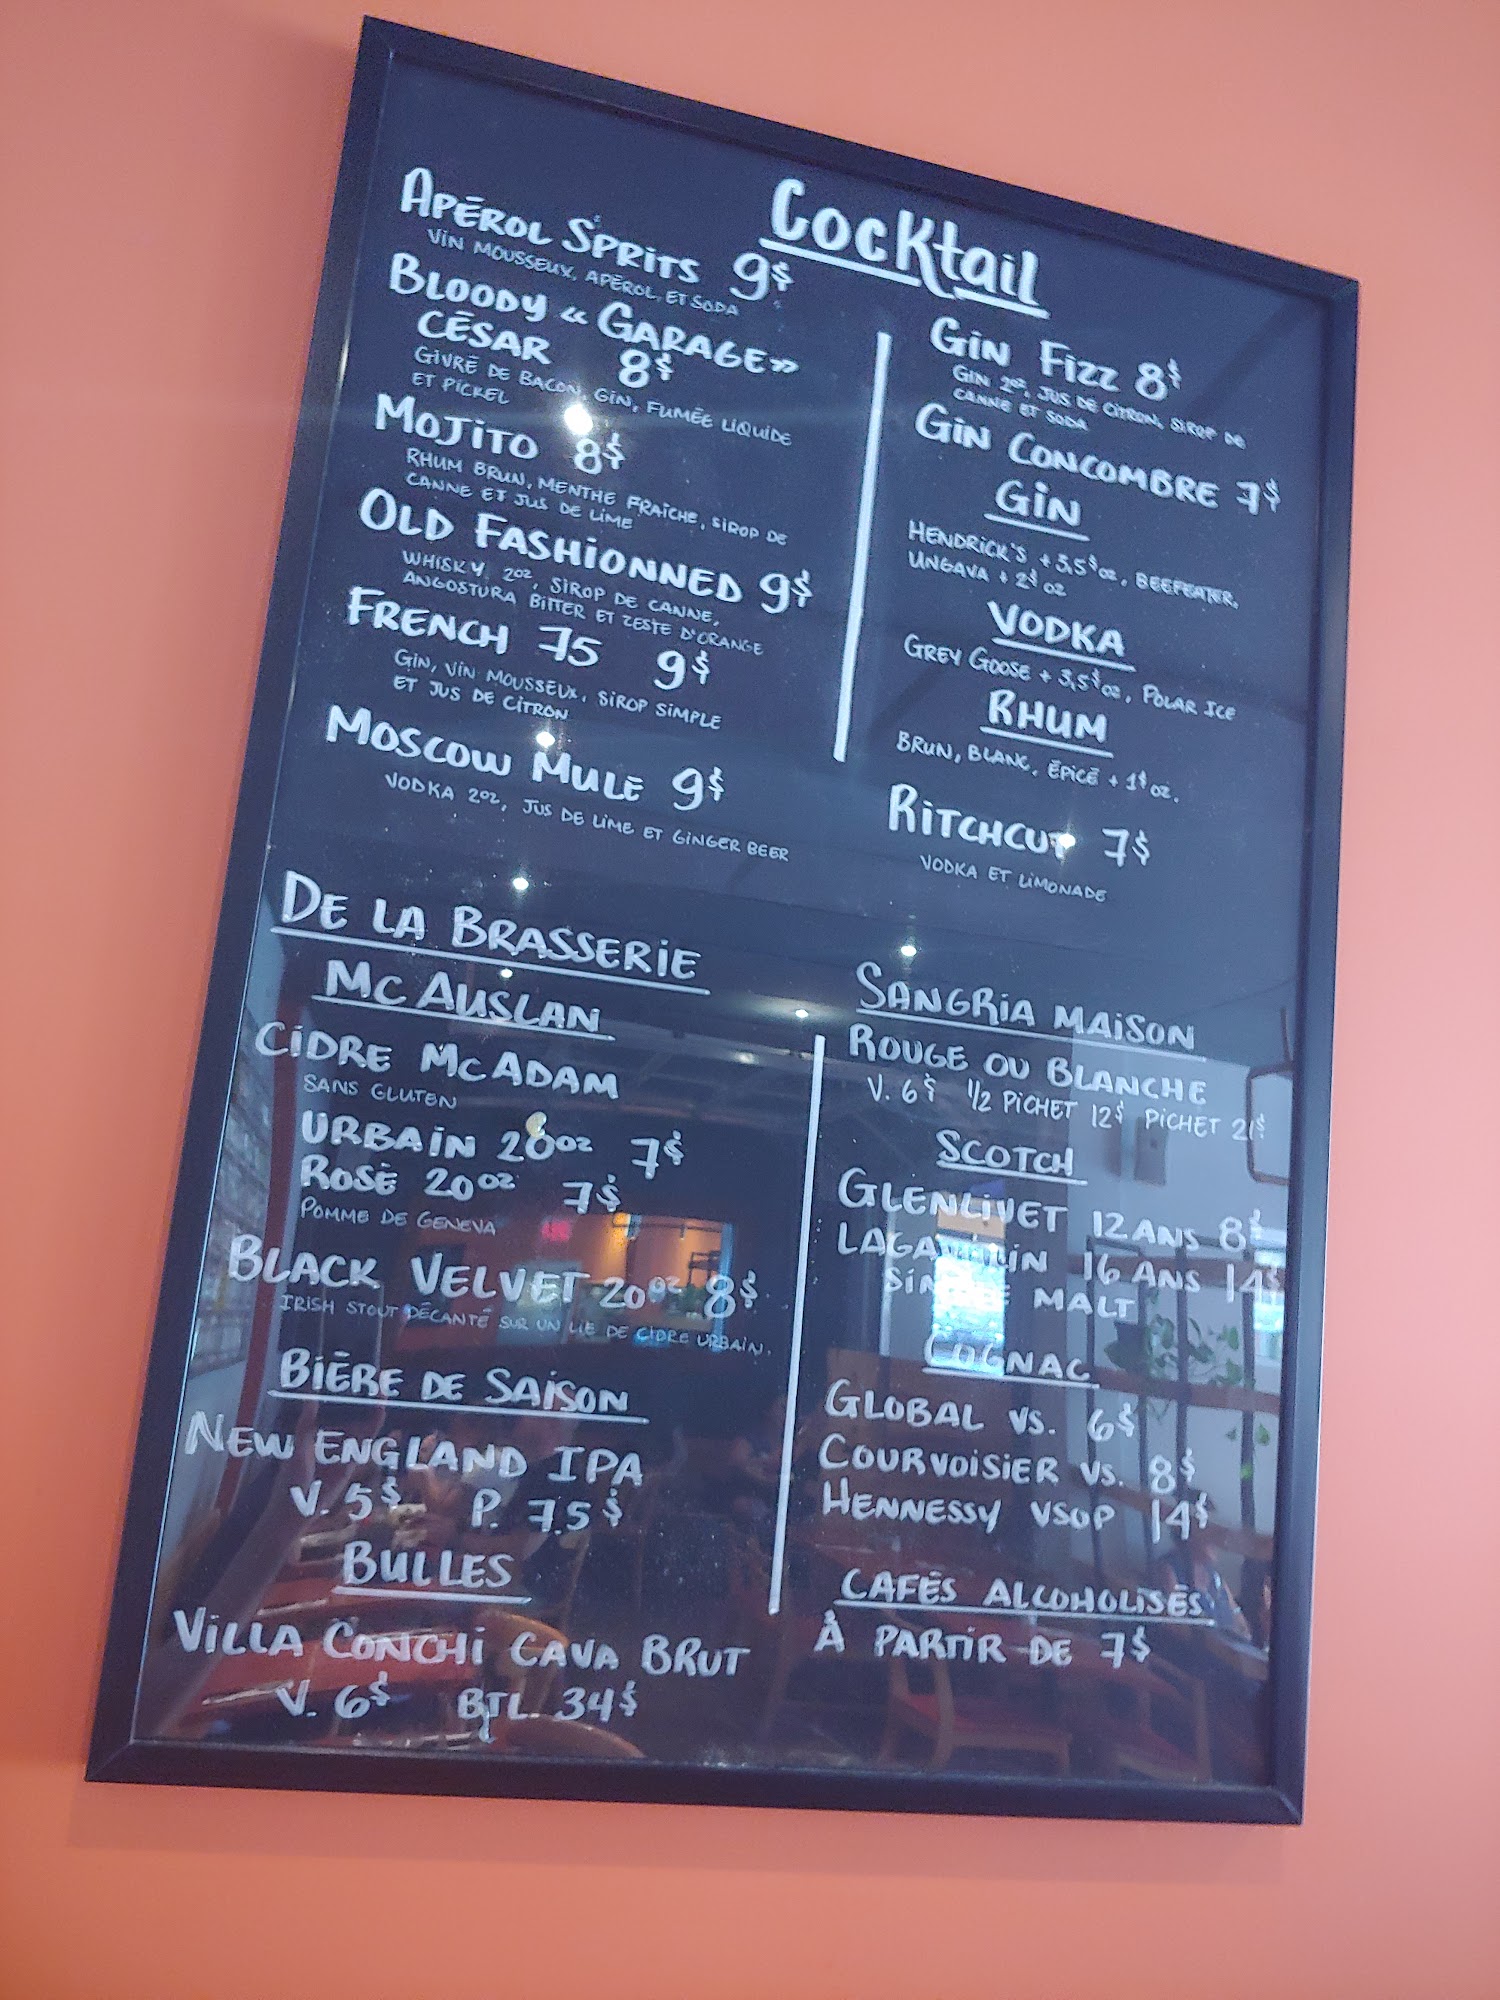 Cocktail
APÉROL SPRITS 9$
VIN MOUSSEUX, APÉROL, ET SODA
BLOODY « GARAGE »
CÉSAR 8$
GIVRÉ DE BACON, GIN, FUMÉE LIQUIDE
ET PICKEL
MOJITO 8$
RHUM BRUN, MENTHE FRAICHE, SIROP DE
CANNE ET JUS DE LIME
OLD FASHIONNED 9$
WHISKY 2oz, SIROP DE CANNE,
ANGOSTURA BITTER ET ZESTE D'ORANGE
FRENCH 75 9$
GIN, VIN MOUSSEUX, SIROP SIMPLE
ET JUS DE CITRON
MOSCOW MULE 9$
VODKA 2oz, JUS DE LIME ET GINGER BEER
GIN FIZZ 8$
GIN 2oz, JUS DE CITRON, SIROP DE
CANNE ET SODA
GIN CONCOMBRE 7$
GIN
HENDRICK'S + 3,5$ oz, BEEFEATER,
UNGAVA + 2$ oz
VODKA
GREY GOOSE + 3,5$ oz, POLAR ICE
RHUM
BRUN, BLANC, ÉPICÉ + 1$ oz.
RITCHCUT 7$
VODKA ET LIMONADE
DE LA BRASSERIE
MC AUSLAN
CIDRE MCADAM
SANS GLUTEN
URBAIN 20oz 7$
ROSÉ 20oz 7$
POMME DE GENEVA
BLACK VELVET 20oz 8$
IRISH STOUT DÉCANTÉ SUR UN LIE DE CIDRE URBAIN.
BIÈRE DE SAISON
NEW ENGLAND IPA
V. 5$ P. 7.5$
BULLES
VILLA CONCHI CAVA BRUT
V. 6$ BTL. 34$
SANGRIA MAISON
ROUGE OU BLANCHE
V. 6$ 1/2 PICHET 12$ PICHET 21$
SCOTCH
GLENLIVET 12 ANS 8$
LAGAVULIN 16 ANS 14$
SINGLE MALT
COGNAC
GLOBAL VS. 6$
COURVOISIER VS. 8$
HENNESSY VSOP 14$
CAFÉS ALCOHOLISÉS
À PARTIR DE 7$